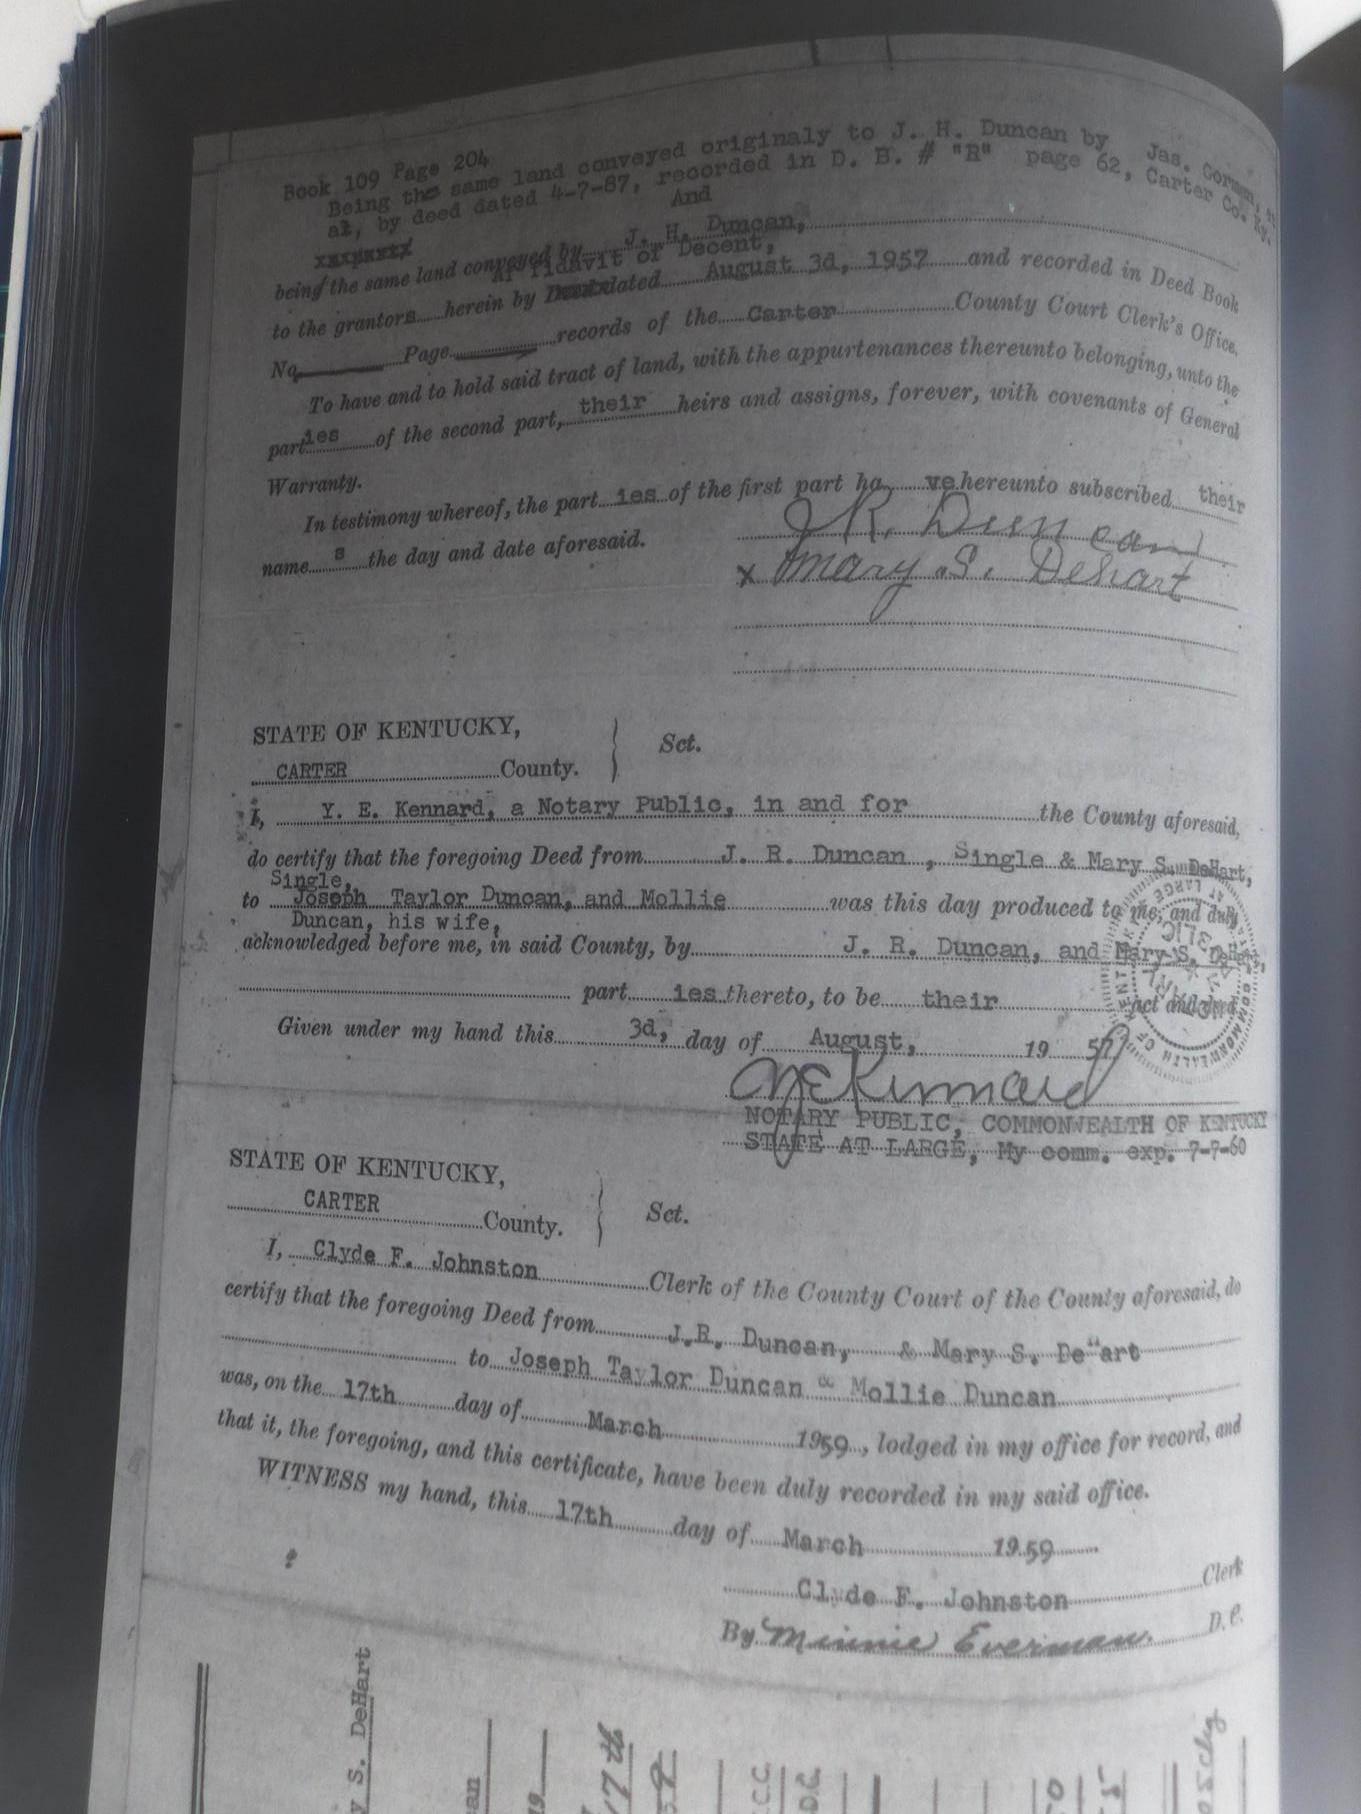 Book 109 Page 204
Being the same land conveyed originaly to J. H. Duncan by Jas. Gorman, et
al, by deed dated 4-7-87, recorded in D. B. # "R" page 62, Carter Co. Ky.
And
being the same land conveyed by J. H. Duncan,
Affidavit of Decent,
to the grantors herein by dated August 3d, 1957 and recorded in Deed Book
No. Page records of the Carter County Court Clerk's Office.
To have and to hold said tract of land, with the appurtenances thereunto belonging, unto the
parties of the second part, their heirs and assigns, forever, with covenants of General
Warranty.
In testimony whereof, the part ies of the first part ha ve hereunto subscribed their
name s the day and date aforesaid.
J R. Duncan
x Mary S. Dehart
STATE OF KENTUCKY,
CARTER County. } Sct.
I, Y. E. Kennard, a Notary Public, in and for the County aforesaid,
do certify that the foregoing Deed from J. R. Duncan , Single & Mary S. DeHart,
Single,
to Joseph Taylor Duncan, and Mollie was this day produced to me, and duly
Duncan, his wife,
acknowledged before me, in said County, by J. R. Duncan, and Mary S. DeHart,
part ies thereto, to be their act and deed.
Given under my hand this 3d, day of August, 19 57
Y E Kennard
NOTARY PUBLIC, COMMONWEALTH OF KENTUCKY
STATE AT LARGE, My comm. exp. 7-7-60
STATE OF KENTUCKY,
CARTER County. } Sct.
I, Clyde F. Johnston Clerk of the County Court of the County aforesaid, do
certify that the foregoing Deed from J.R. Duncan, & Mary S. DeHart
to Joseph Taylor Duncan & Mollie Duncan
was, on the 17th day of March 1959, lodged in my office for record, and
that it, the foregoing, and this certificate, have been duly recorded in my said office.
WITNESS my hand, this 17th day of March 1959
Clyde F. Johnston Clerk
By Minnie Everman. D. C.
y S. DeHart
17th